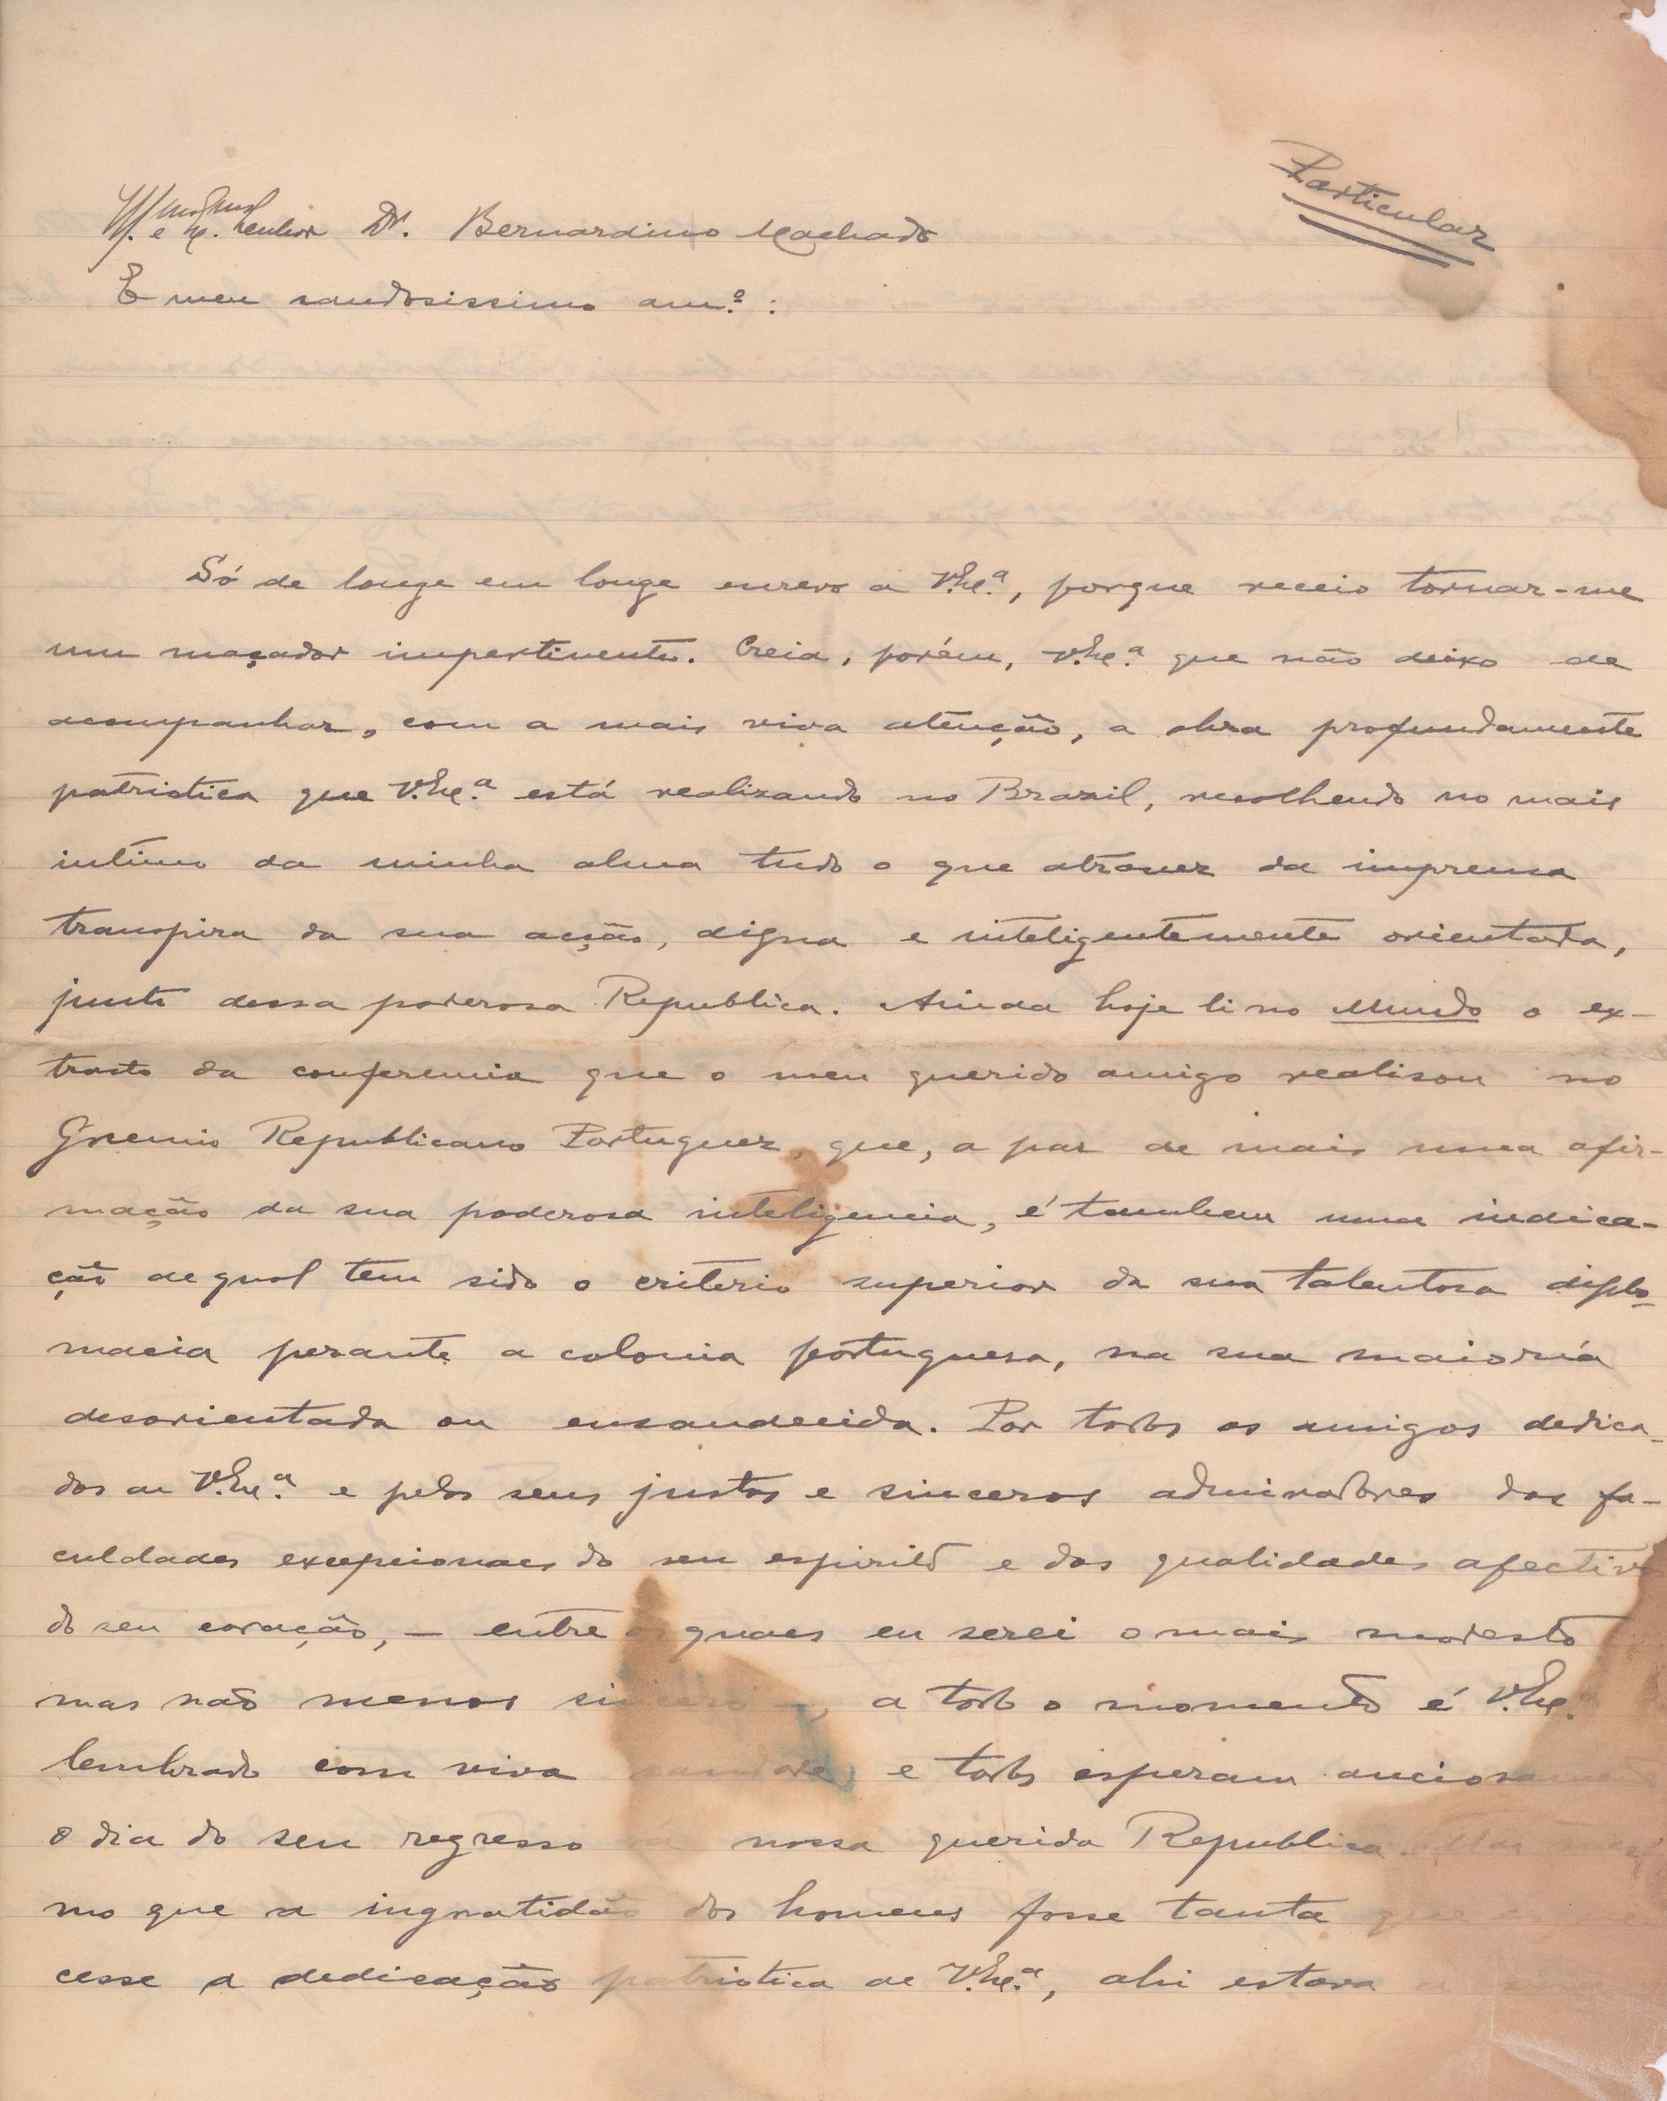 Particular
Ill.mo e Ex.mo Senhor Dr. Bernardino Machado
E meu saudosissimo am.º:
Só de longe em longe escrevo a V.Ex.ª, porque receio tornar-me
um maçador impertinente. Creia, porém, V.Ex.ª que não deixo de
acompanhar, com a mais viva atenção, a obra profundamente
patriotica que V.Ex.ª está realizando no Brazil, recolhendo no mais
intimo da minha alma tudo o que atravez da imprensa
transpira da sua acção, digna e inteligentemente orientada,
junto dessa poderosa Republica. Ainda hoje li no Mundo o ex-
tracto da conferencia que o meu querido amigo realisou no
Gremio Republicano Portuguez, que, a par de mais uma afir-
mação da sua poderosa inteligencia, é tambem uma indica-
ção de qual tem sido o criterio superior da sua talentosa diplo-
macia perante a colonia portuguesa, na sua maioria
desorientada ou ensandecida. Por todos os amigos dedica-
dos de V.Ex.ª e pelos seus justos e sinceros admiradores das fa-
culdades excepcionaes do seu espirito e das qualidades afectiv
do seu coração, — entre os quaes eu serei o mais modesto
mas não menos sincero —, a todo o momento é V.Ex.ª
lembrado com viva saudade e todos esperam anciosamente
o dia do seu regresso á nossa querida Republica. Mas mes
mo que a ingratidão dos homens fosse tanta que
cesse a dedicação patriotica de V.Ex.ª, ahi estava a